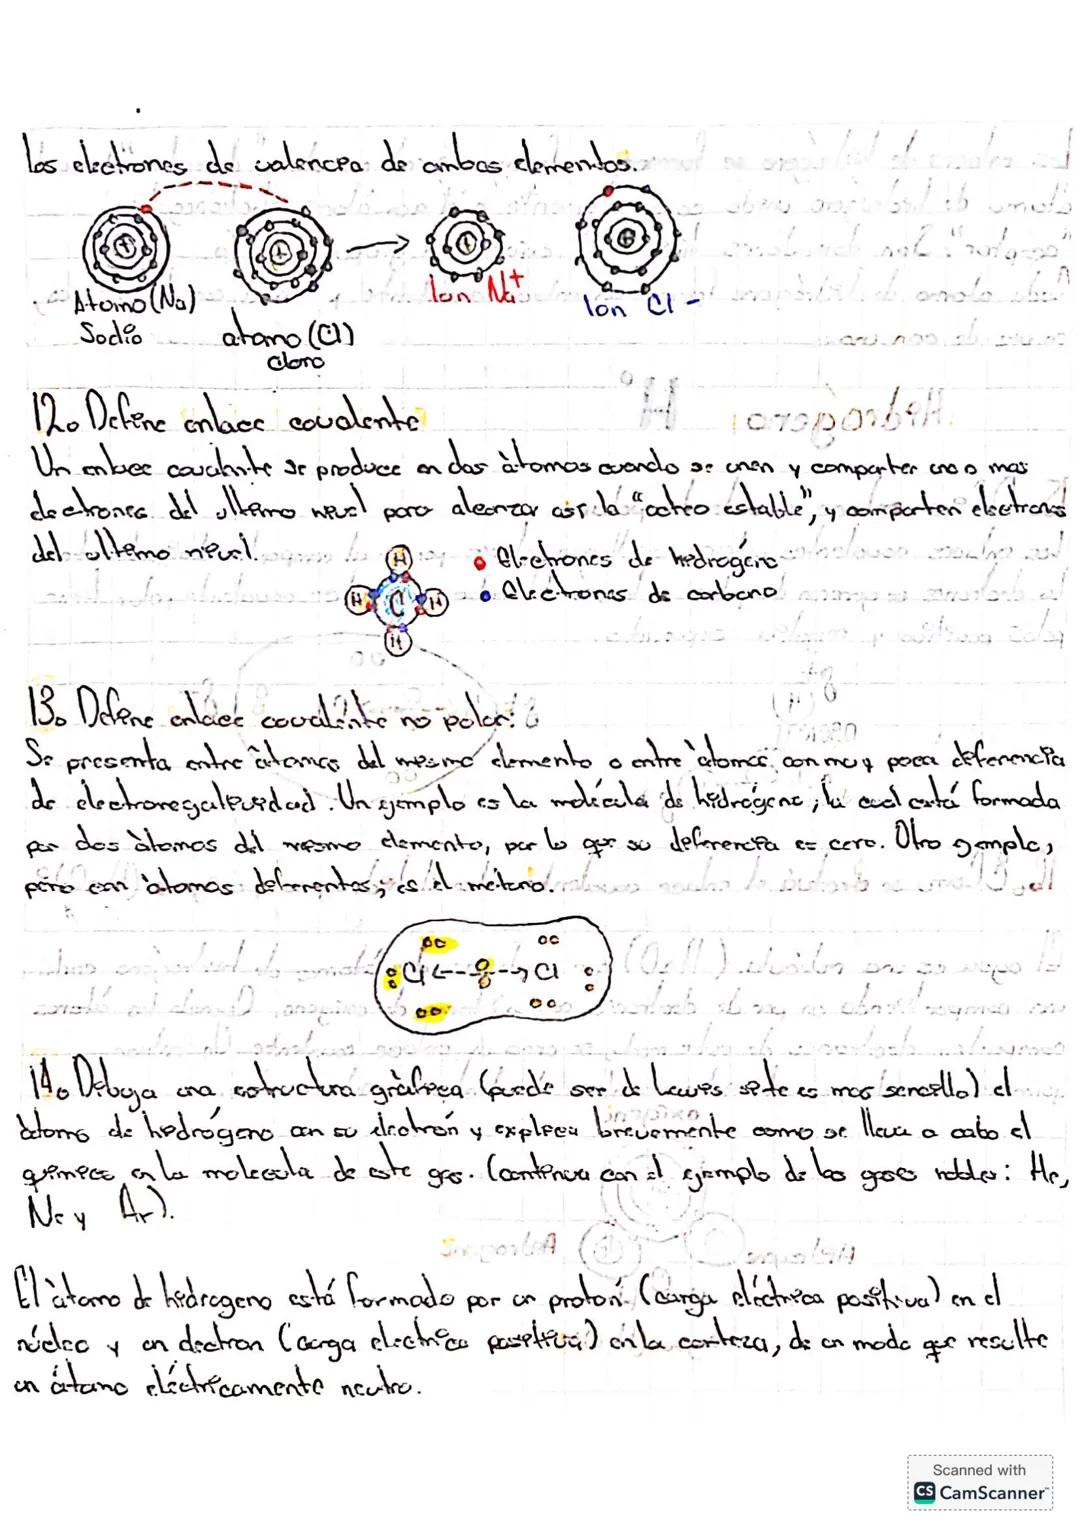 los electrones de valencia de ambos elementos.
Átomo (Na)
Sodio
átomo (Cl)
cloro
Ion Na+
Ion Cl -
12. Define enlace covalente
Un enlace covalente se produce en dos àtomos cuando se unen y comparter uno o mas
electrones del ultimo nivel para alcanzar asi la "octeo estable", y comparten electrones
del ultimo nivel.
H
H C H
H
Electrones de hidrogeno
Electrones de carbono
13. Define enlace covalente no polar:
Se presenta entre àtomos del mismo elemento o entre àtomos, con muy poca diferencia
de electronegatividad. Un ejemplo es la molécula de hidrógeno, la cual está formada
por dos àtomos del mismo elemento, por lo que su diferencia es cero. Otro ejemplo,
pero con àtomos diferentes, es el metano.
Cl Cl
14. Dibuja una estructura gràfica (puede ser de Lewis si te es mas sencillo) el
àtomo de hidrógeno con su electrón y explica brevemente como se lleva a cabo el
quimico en la molecula de este gas. (continua con el ejemplo de los gases nobles: He,
Ne y Ar).
El àtomo de hidrogeno está formado por un protón (carga eléctrica positiva) en el
núcleo y un electron (carga electrica positiva) en la corteza, de un modo que resulte
un átomo eléctricamente neutro.
Scanned with
CS CamScanner